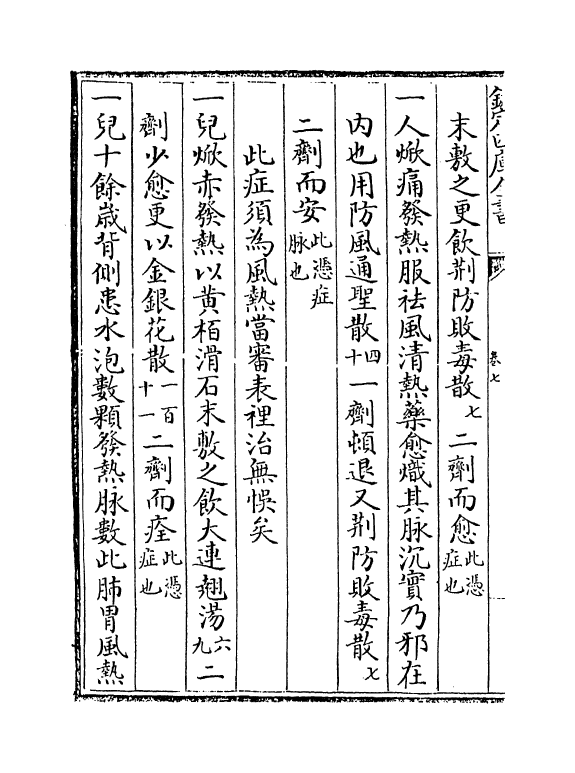 欽定四庫全書
卷七
末敷之更飲荆防敗毒散七二劑而愈此憑症也
一人焮痛發熱服祛風清熱藥愈熾其脉沉實乃邪在
内也用防風通聖散四十一劑頓退又荆防敗毒散七
二劑而安此憑症脉也
此症須為風熱當審表裡治無悞矣
一兒焮赤發熱以黄栢滑石末敷之飲大連翹湯六九二
劑少愈更以金銀花散一百十一二劑而痊此憑症也
一兒十餘歲背側患水泡數顆發熱脉數此肺胃風熱